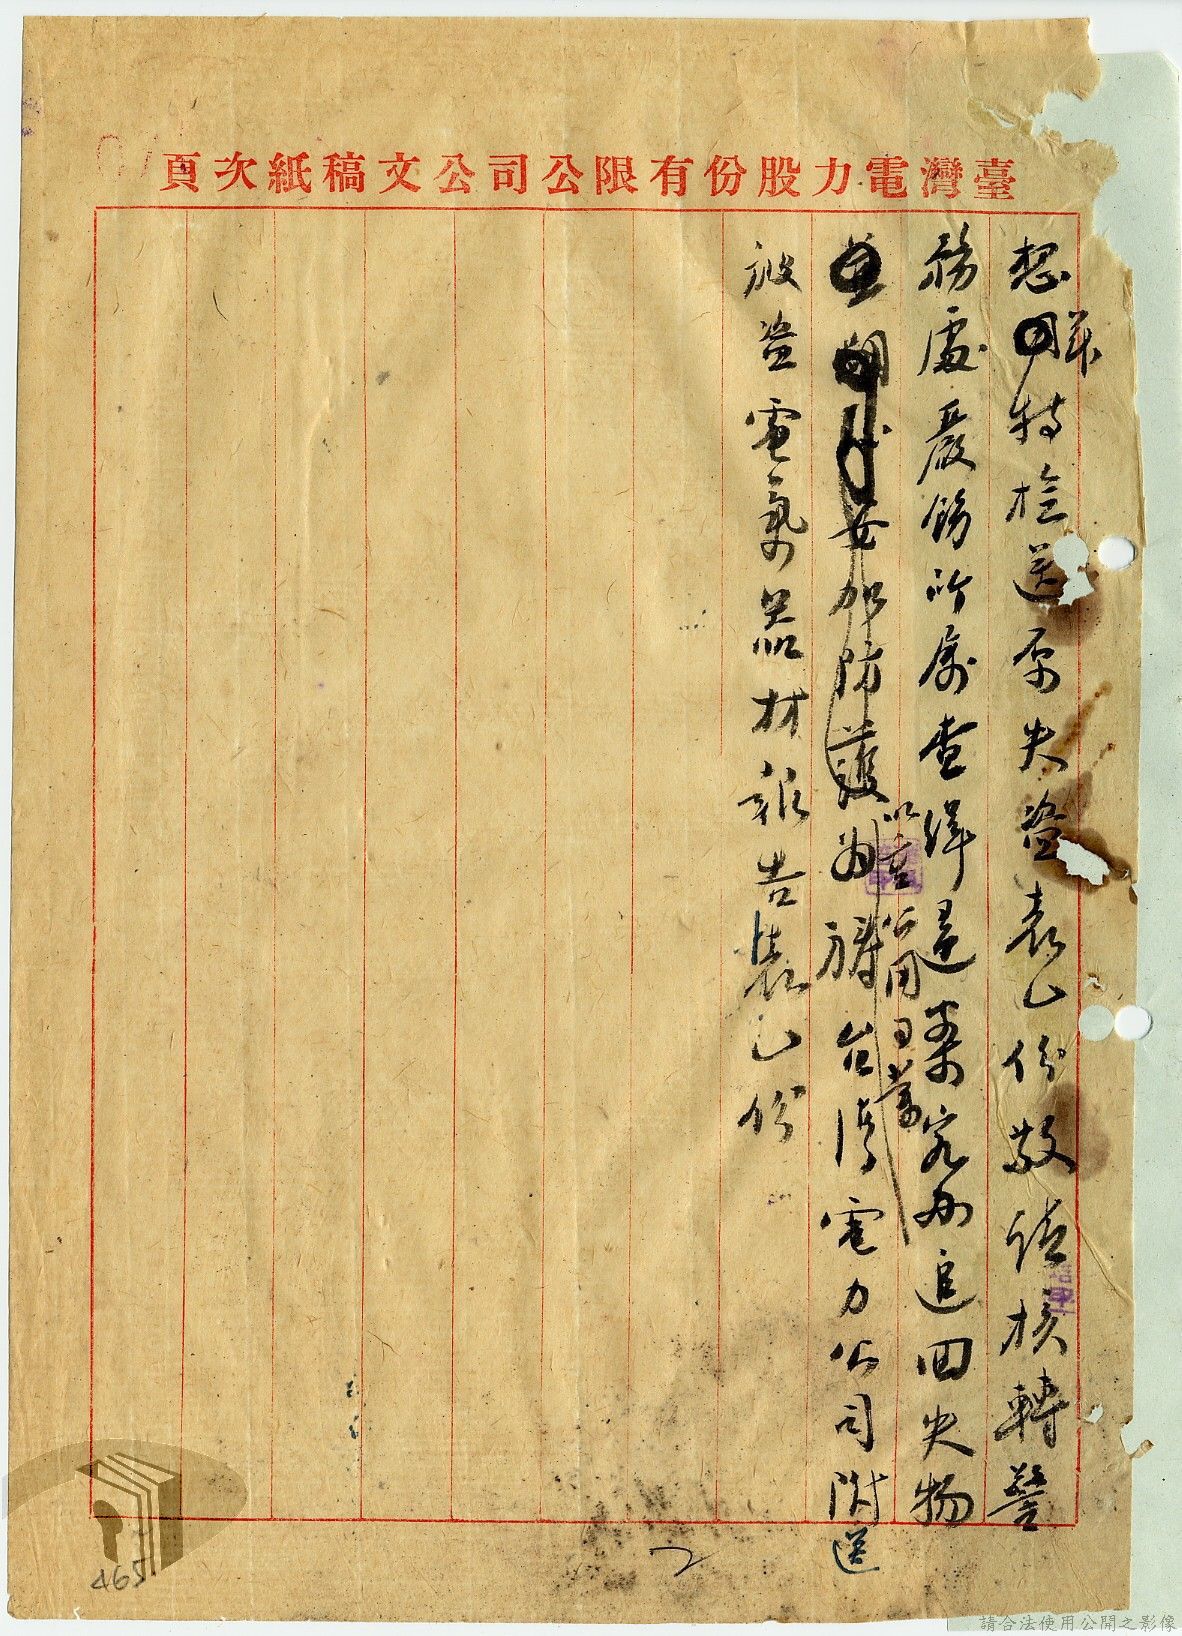 臺灣電力股份有限公司公文稿紙次頁
懇 祥特檢送原失盜表乙份敬請核轉警
務處嚴飭所屬查緝過案究辦追回失物
並 妥加防護為禱台湾電力公司附送
以重公用事業
被盜電氣器材報告表乙份
465
請合法使用公開之影像